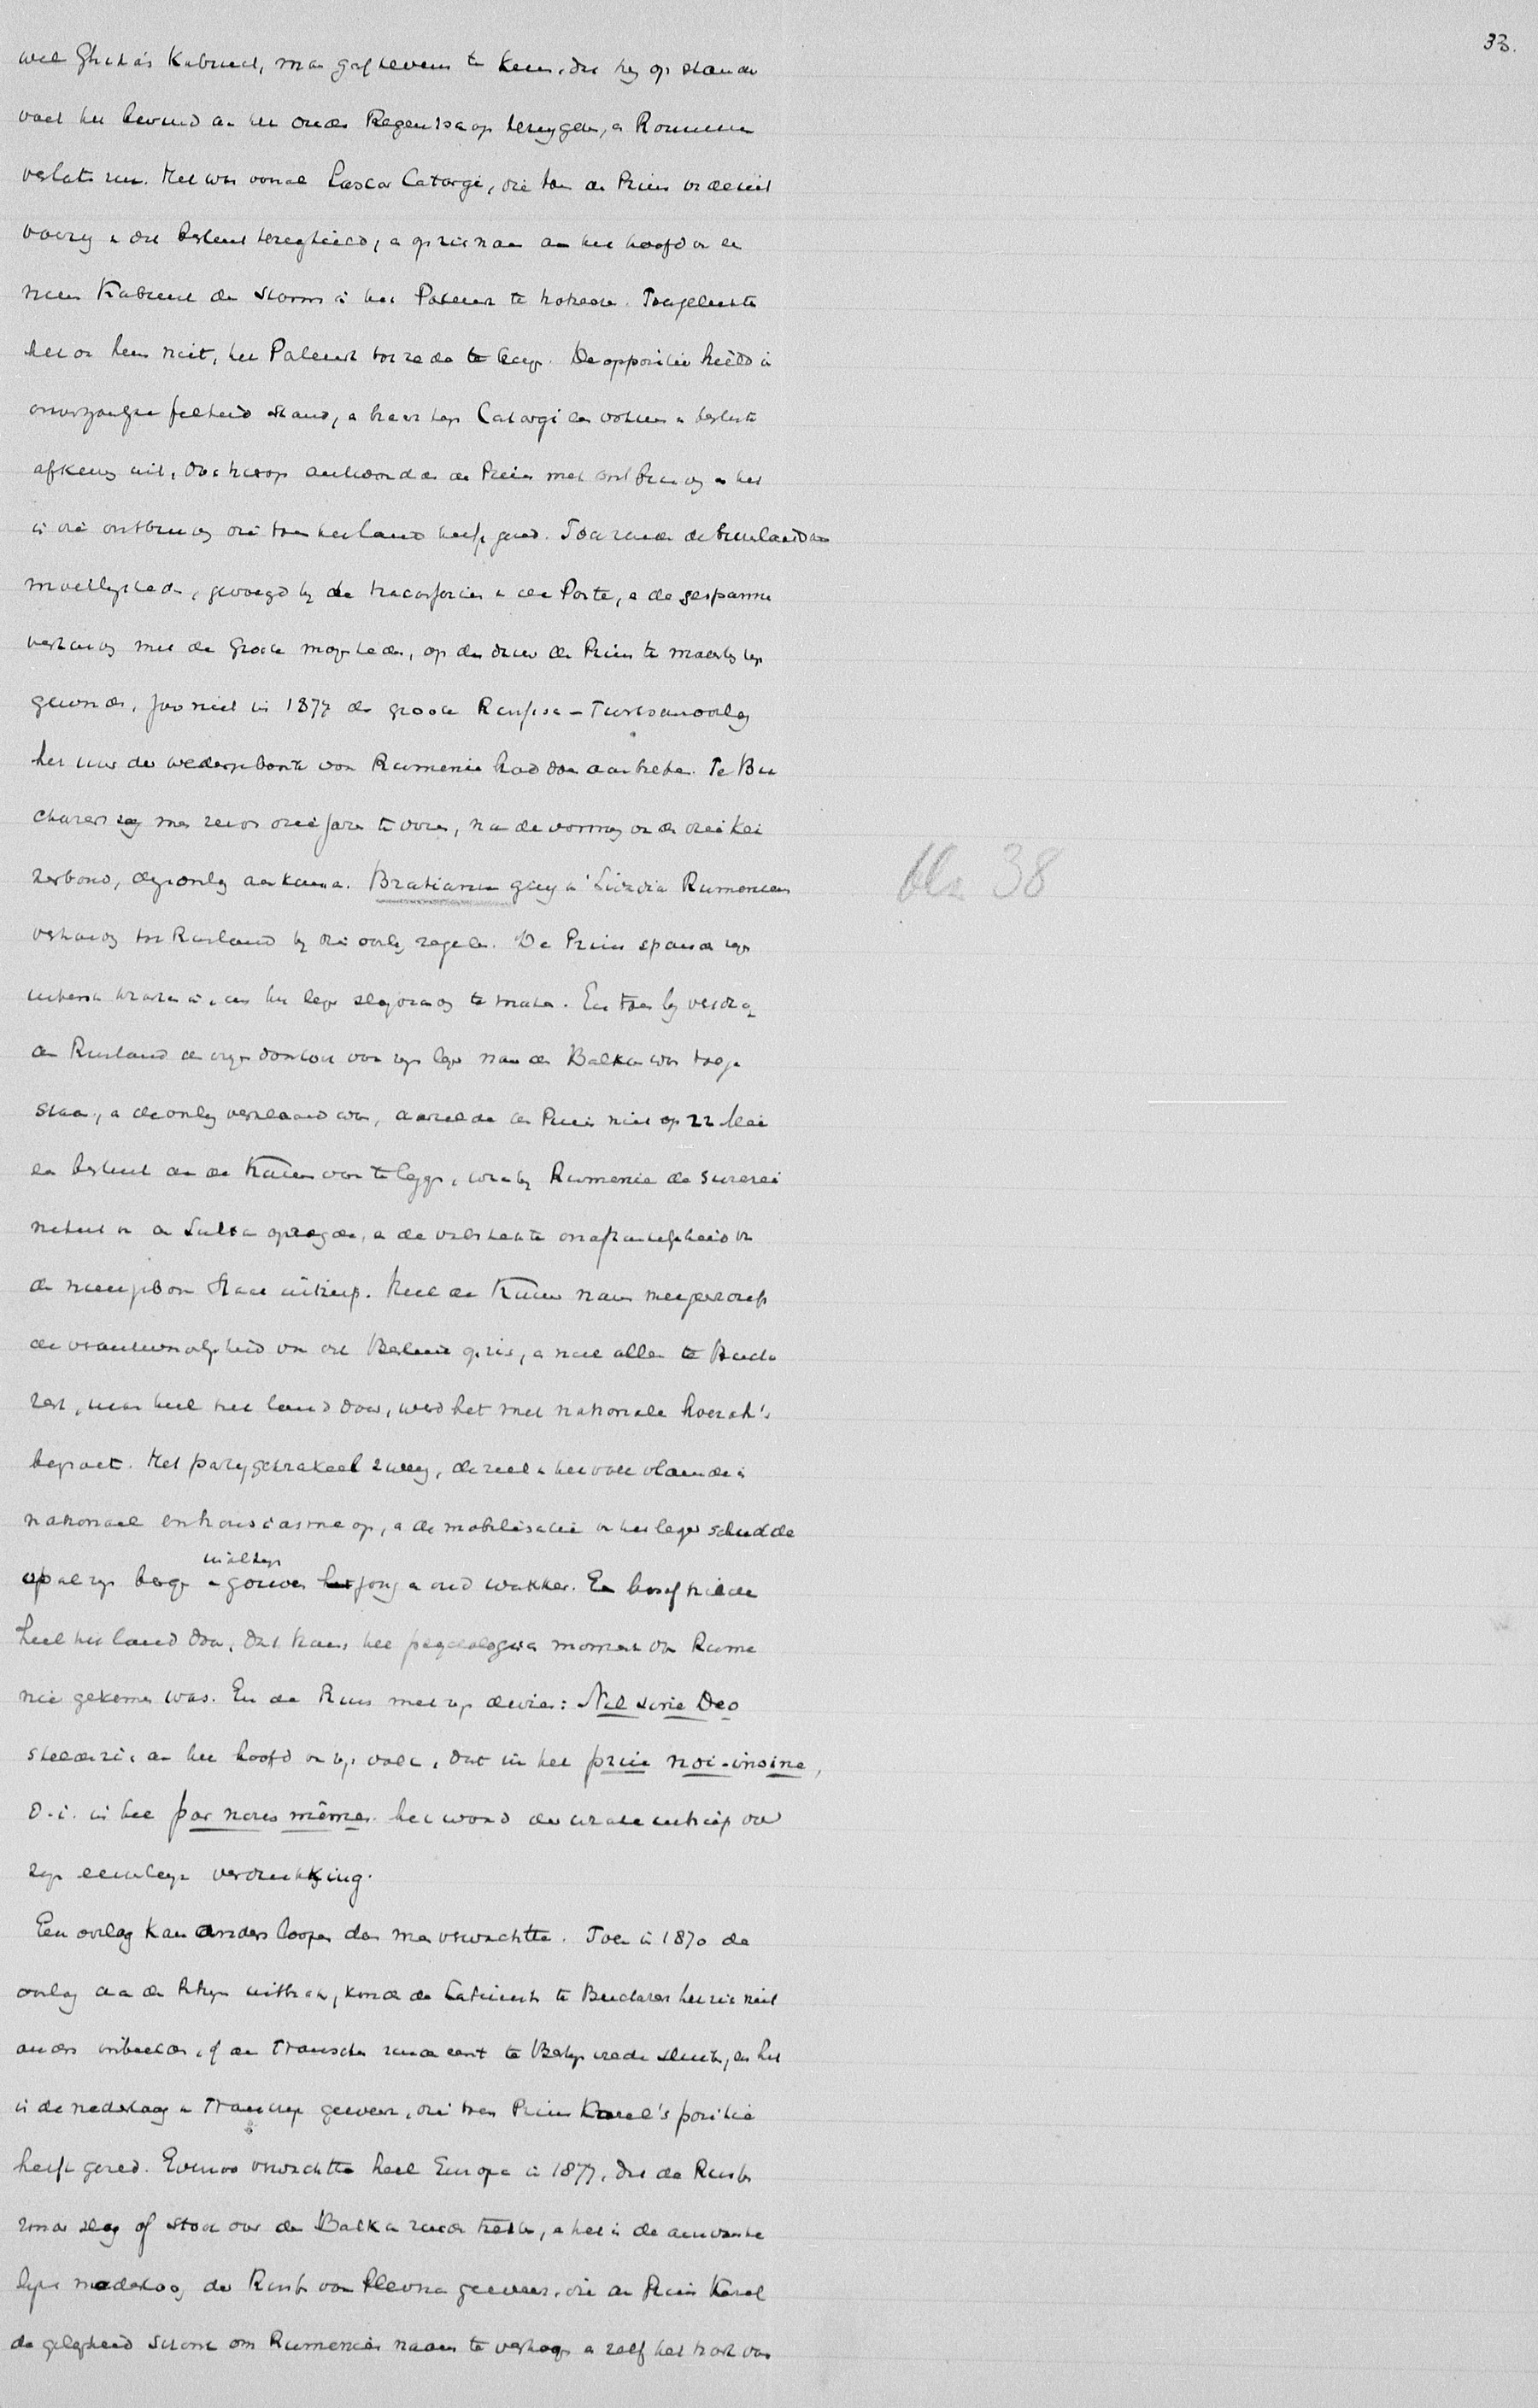 33.
wel Ghika's Kabinet, maar gaf tevens te kennen, dat hij op staande
voet het bewind aan het oude Regentschap teruggeven, en Roumenie
verlaten zou. Het was vooral Lascar Catargi, die toen den Prins van de uit
voering van dit besluit terughield, en op zich nam aan het hoofd van een
nieuw Kabinet den storm in het Parlement te trotseeren. Toch gelukte
het ook hem niet, het Parlement tot rede te brengen. De oppositie hield in
felheid stand, en
afkeuring uit, doch hierop antwoordde de Prins met ontbinding en het
is die ontbinding die toen het land heeft gered. Toch zouden de binnenlandsche
moeilijkheden, gevoegd bij de tracasserieën van de Porte, en de gespannen
verhouding met de groote mogendheden, op den duur den Prins te machtig zijn
geworden, zoo niet in 1877 de groote Russisch-Turksche oorlog
het uur der wedergeboorte van Rumenie had doen aanbreken. Te Bu
charest zag men reeds drie jaren te voren, na de vorming van den drie kei
zersbond, dezen oorlog aankomen. Bratianu ging in Livadia Rumeniens
verhouding tot Rusland bij dien oorlog regelen. De Prins spande zijn
uiterste krachten in, om het leger slagvaardig te maken. En toen bij verdrag
aan Rusland de vrije doortocht voor zijn leger naar den Balkan was toege
staan, en de oorlog verklaard was, aarzelde de Prins niet op 22 Mei
een besluit aan de Kamer voor te leggen, waarbij Rumenie de suzerei
niteit van den Sultan opzegde, en de volstrekte onafhankelijkheid van
den nieuwgeboren Staat uitriep. Heel de Kamer nam meegesleept
de verantwoordelijkheid van dit Besluit op zich, en niet alleen te Bucha
rest, maar heel het land door, werd het met nationale hoerah's
begroet. Het partijgekrakeel zweeg, de ziel van het volk vlamde in
nationaal enthousiasme op, en de mobilisatie van het leger schudde
op al zijn bergen en gouwen jong en oud wakker. Een besef trilde
heel het land door, dat thans het psychologisch moment van Rume
nie gekomen was. En de Prins met zijn devies: Nil sine Deo
stelde zich aan het hoofd van zijn volk, dat in het prin noi-insine,
d.i. in het par nous mêmes het woord der wrake uitriep over
zijn eeuwenlange verdrukking.
Een oorlog kan anders loopen dan men verwachtte. Toen in 1870 de
oorlog aan den Rhijn uitbrak, konden de Latinisten te Bucharest het zich niet
anders inbeelden, of de Franschen zouden eerst te Berlijn vrede sluiten, en het
is de nederlaag van Frankrijk geweest, die toen Prins Karel's positie
heeft gered. Evenzoo verwachtte heel Europa in 1877, dat de Russen
zonder slag of stoot over den Balkan zouden trekken, en het is de aanvanke
lijke nederlaag der Russen voor Plevna geweest, die aan Prins Karel
de gelegenheid schonk om Rumeniës naam te verhoogen en zelf het hart van
blz 38